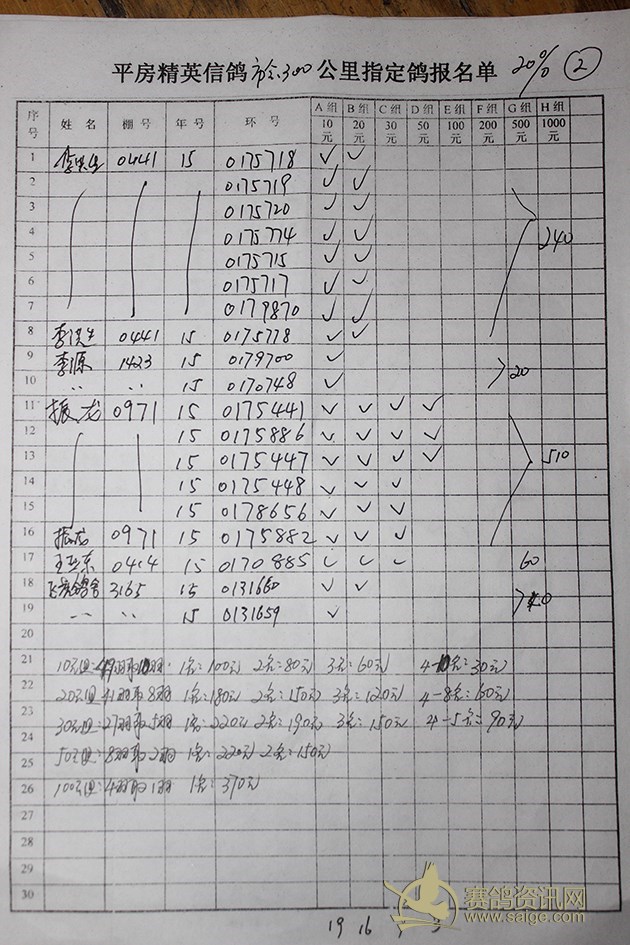 平房精英信鸽市令300公里指定鸽报名单 20% ②
序号 姓名 棚号 年号 环号 A组10元 B组20元 C组30元 D组50元 E组100元 F组200元 G组500元 H组1000元
1 0441 15 0175718 ✓ ✓
2 0175719 ✓ ✓
3 0175720 ✓ ✓
4 0175774 ✓ ✓ 240
5 0175715 ✓ ✓
6 0175717 ✓ ✓
7 0179870 ✓ ✓
8 0441 15 0175778 ✓ ✓
9 李源 1423 15 0179700 ✓ 20
10 〃 〃 15 0170748 ✓
11 振龙 0971 15 0175441 ✓ ✓ ✓ ✓
12 15 0175886 ✓ ✓ ✓ ✓
13 15 0175447 ✓ ✓ ✓ ✓ 510
14 15 0175448 ✓ ✓ ✓
15 15 0178656 ✓ ✓ ✓
16 振龙 0971 15 0175882 ✓ ✓ ✓
17 王亚东 0414 15 0170885 ✓ ✓ ✓ 60
18 3165 15 0131660 ✓ ✓
19 〃 〃 15 0131659 ✓
20
21 10元组:49羽取10羽 1名:100元 2名:80元 3名:60元 4-10名:30元
22 20元组:41羽取8羽 1名:180元 2名:150元 3名:120元 4-8名:60元
23 30元组:27羽取5羽 1名:220元 2名:190元 3名:150元 4-5名:90元
24
25 50元组:8羽取2羽 1名:220元 2名:150元
26 100元组:4羽取1羽 1名:370元
27
28
29
30
19 16 3
赛鸽资讯网
www.saige.com